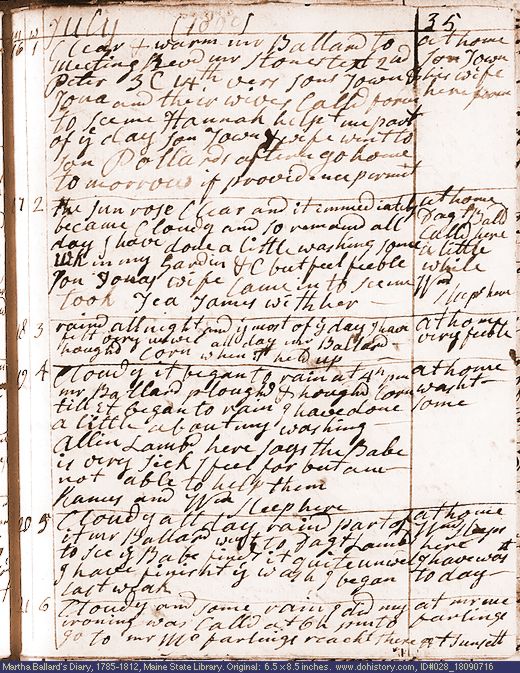 July 1809 35
16 1 Clear & warm mr Ballard to at home
meeting Revd mr Stones text 2nd Son Town
Peter 3 C 14th vers Sons Town & his wife
Jona and their wives Calld from here from
to see me Hannah helpt me part
of ye day Son Town & wife went to
Son Pollards after go home
to morrow if providence permit
17 2 the sun rose Clear and it immediately at home
became Cloudy and so remaind all Dagt Balld
day I have done a little washing some Calld here
wk in my Gardin &C but feel feeble a little
Son Jonas wife Came in to see me while
took Tea James with her Wm
Sleeps here
18 3 raind all night and ye most of ye day I have at home
felt very unwel all day mr Ballard very feeble
houghd Corn when it held up
19 4 Cloudy it began to rain at 4h pm at home
mr Ballard ploughd & houghd Corn washt
till it began to rain I have done some
a little about my washing
Allin Lamb here says the Babe
is very sick I feel for but am
not able to help them
James and Wm Sleep here
20 5 Cloudy all day rain part of at home
it mr Ballard went to Dagt Lambs Wm Sleeps
to see ye Babe finds it quite unwel here
I have finisht ye wash I began I have washt
last weak today
21 6 Cloudy and some rain I did my at mr mc
ironing was Calld at 6h pm to farlings
go to mr Mc farlings reacht there at Sunsett
Martha Ballard's Diary, 1785-1812, Maine State Library, Original: 6.5 x 8.5 inches. www.dohistory.com, ID#028_18090716